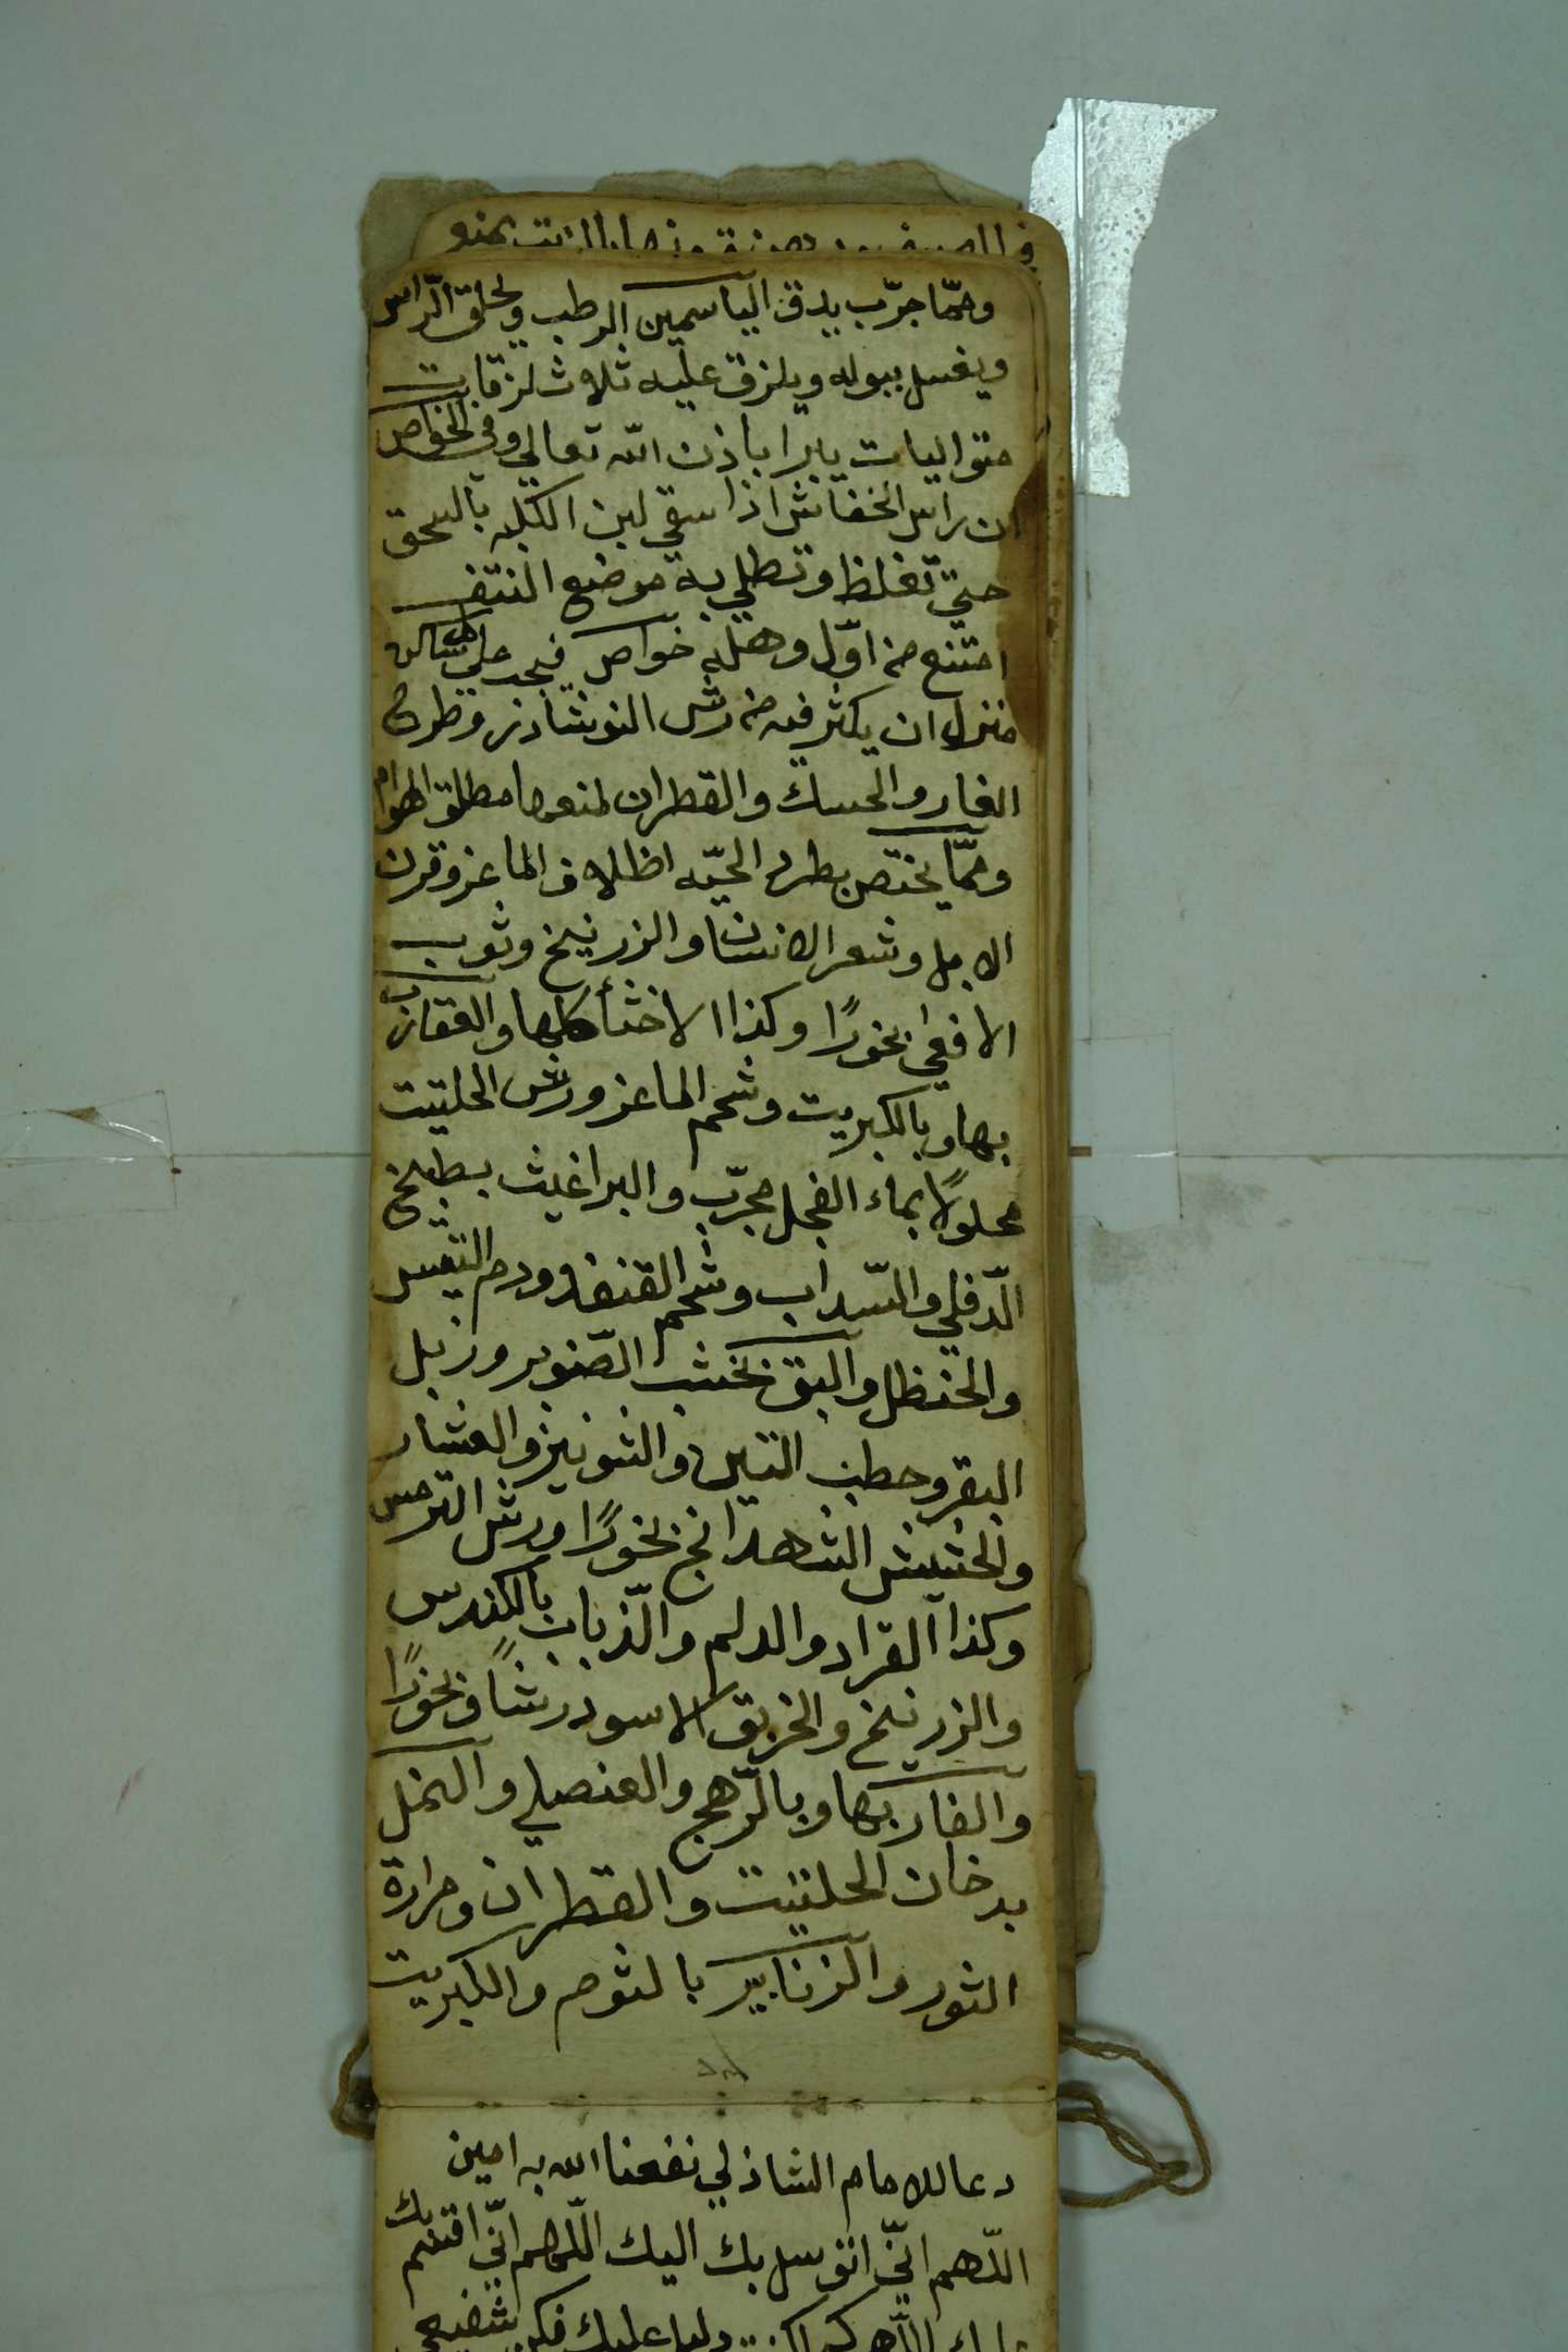 ومما جرّب يدق الياسمين الرطب ويحلق الرّاس
ويغسل ببوله ويلزق عليه ثلاث لزقات
متواليات يبرا باذن الله تعالي وفى الخواص
ان راس الخفاش اذا سقي لبن الكلبه بالسحق
حتي تغلظ وتطلي به موضع النتف
امتنع من اوّل وهله خواص فيجد علي كل ساكن
منزل ان يكثر فيه من رش النوشادر وطرح
الغار والحسك والقطران لمنعها مطلق الهوام
وممّا يختص بطرد الحيّه اظلاف الماعز وقرن
الابل وشعر الانسان والزرنيخ وثوب
الافعي بخورًا وكذا الاخثا كلها والعقارب
بها وبالكبريت وشحم الماعز ورش الحلتيت
محلولًا بماء الفجل مجرّب والبراغيث بطبيخ
الدّفلي والسّداب وشحم القنفد ودم التيس
والحنظل والبق بخشب الصّنوبر وزبل
البقر وحطب التين والشونيز والعشار
والحشيش الشهدانج بخورًا ورش الترمس
وكذا القراد والدلم والذّباب بالكندس
والزرنيخ والخربق الاسود رشًا وبخورًا
والفار بها وبالرّهج والعنصلي والنمل
بدخان الحلتيت والقطران ومرارة
الثور والزنابير بالثوم والكبريت
دعا للامام الشاذلي نفعنا الله به امين
اللّهم انّي اتوسل بك اليك اللّهم انّي اقسم بك
عليك اللهم كما كنت دليلي عليك فكن شفيعي